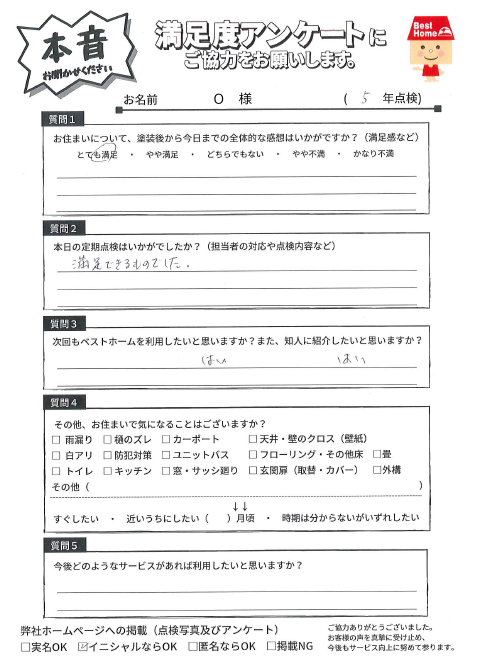 本音
お聞かせください
満足度アンケートに
ご協力をお願いします。
Best Home
お名前 O 様 ( 5 年点検)
質問1
お住まいについて、塗装後から今日までの全体的な感想はいかがですか？（満足感など）
とても満足 ・ やや満足 ・ どちらでもない ・ やや不満 ・ かなり不満
質問2
本日の定期点検はいかがでしたか？（担当者の対応や点検内容など）
満足できるものでした。
質問3
次回もベストホームを利用したいと思いますか？また、知人に紹介したいと思いますか？
はい はい
質問4
その他、お住まいで気になることはございますか？
□ 雨漏り □ 樋のズレ □ カーポート □ 天井・壁のクロス（壁紙）
□ 白アリ □ 防犯対策 □ ユニットバス □ フローリング・その他床 □畳
□ トイレ □ キッチン □ 窓・サッシ廻り □ 玄関扉（取替・カバー） □外構
その他（ ）
↓↓
すぐしたい ・ 近いうちにしたい（ ）月頃 ・ 時期は分からないがいずれしたい
質問5
今後どのようなサービスがあれば利用したいと思いますか？
弊社ホームページへの掲載（点検写真及びアンケート）
□実名OK ☑イニシャルならOK □匿名ならOK □掲載NG
ご協力ありがとうございました。
お客様の声を真摯に受け止め、
今後もサービス向上に努めて参ります。